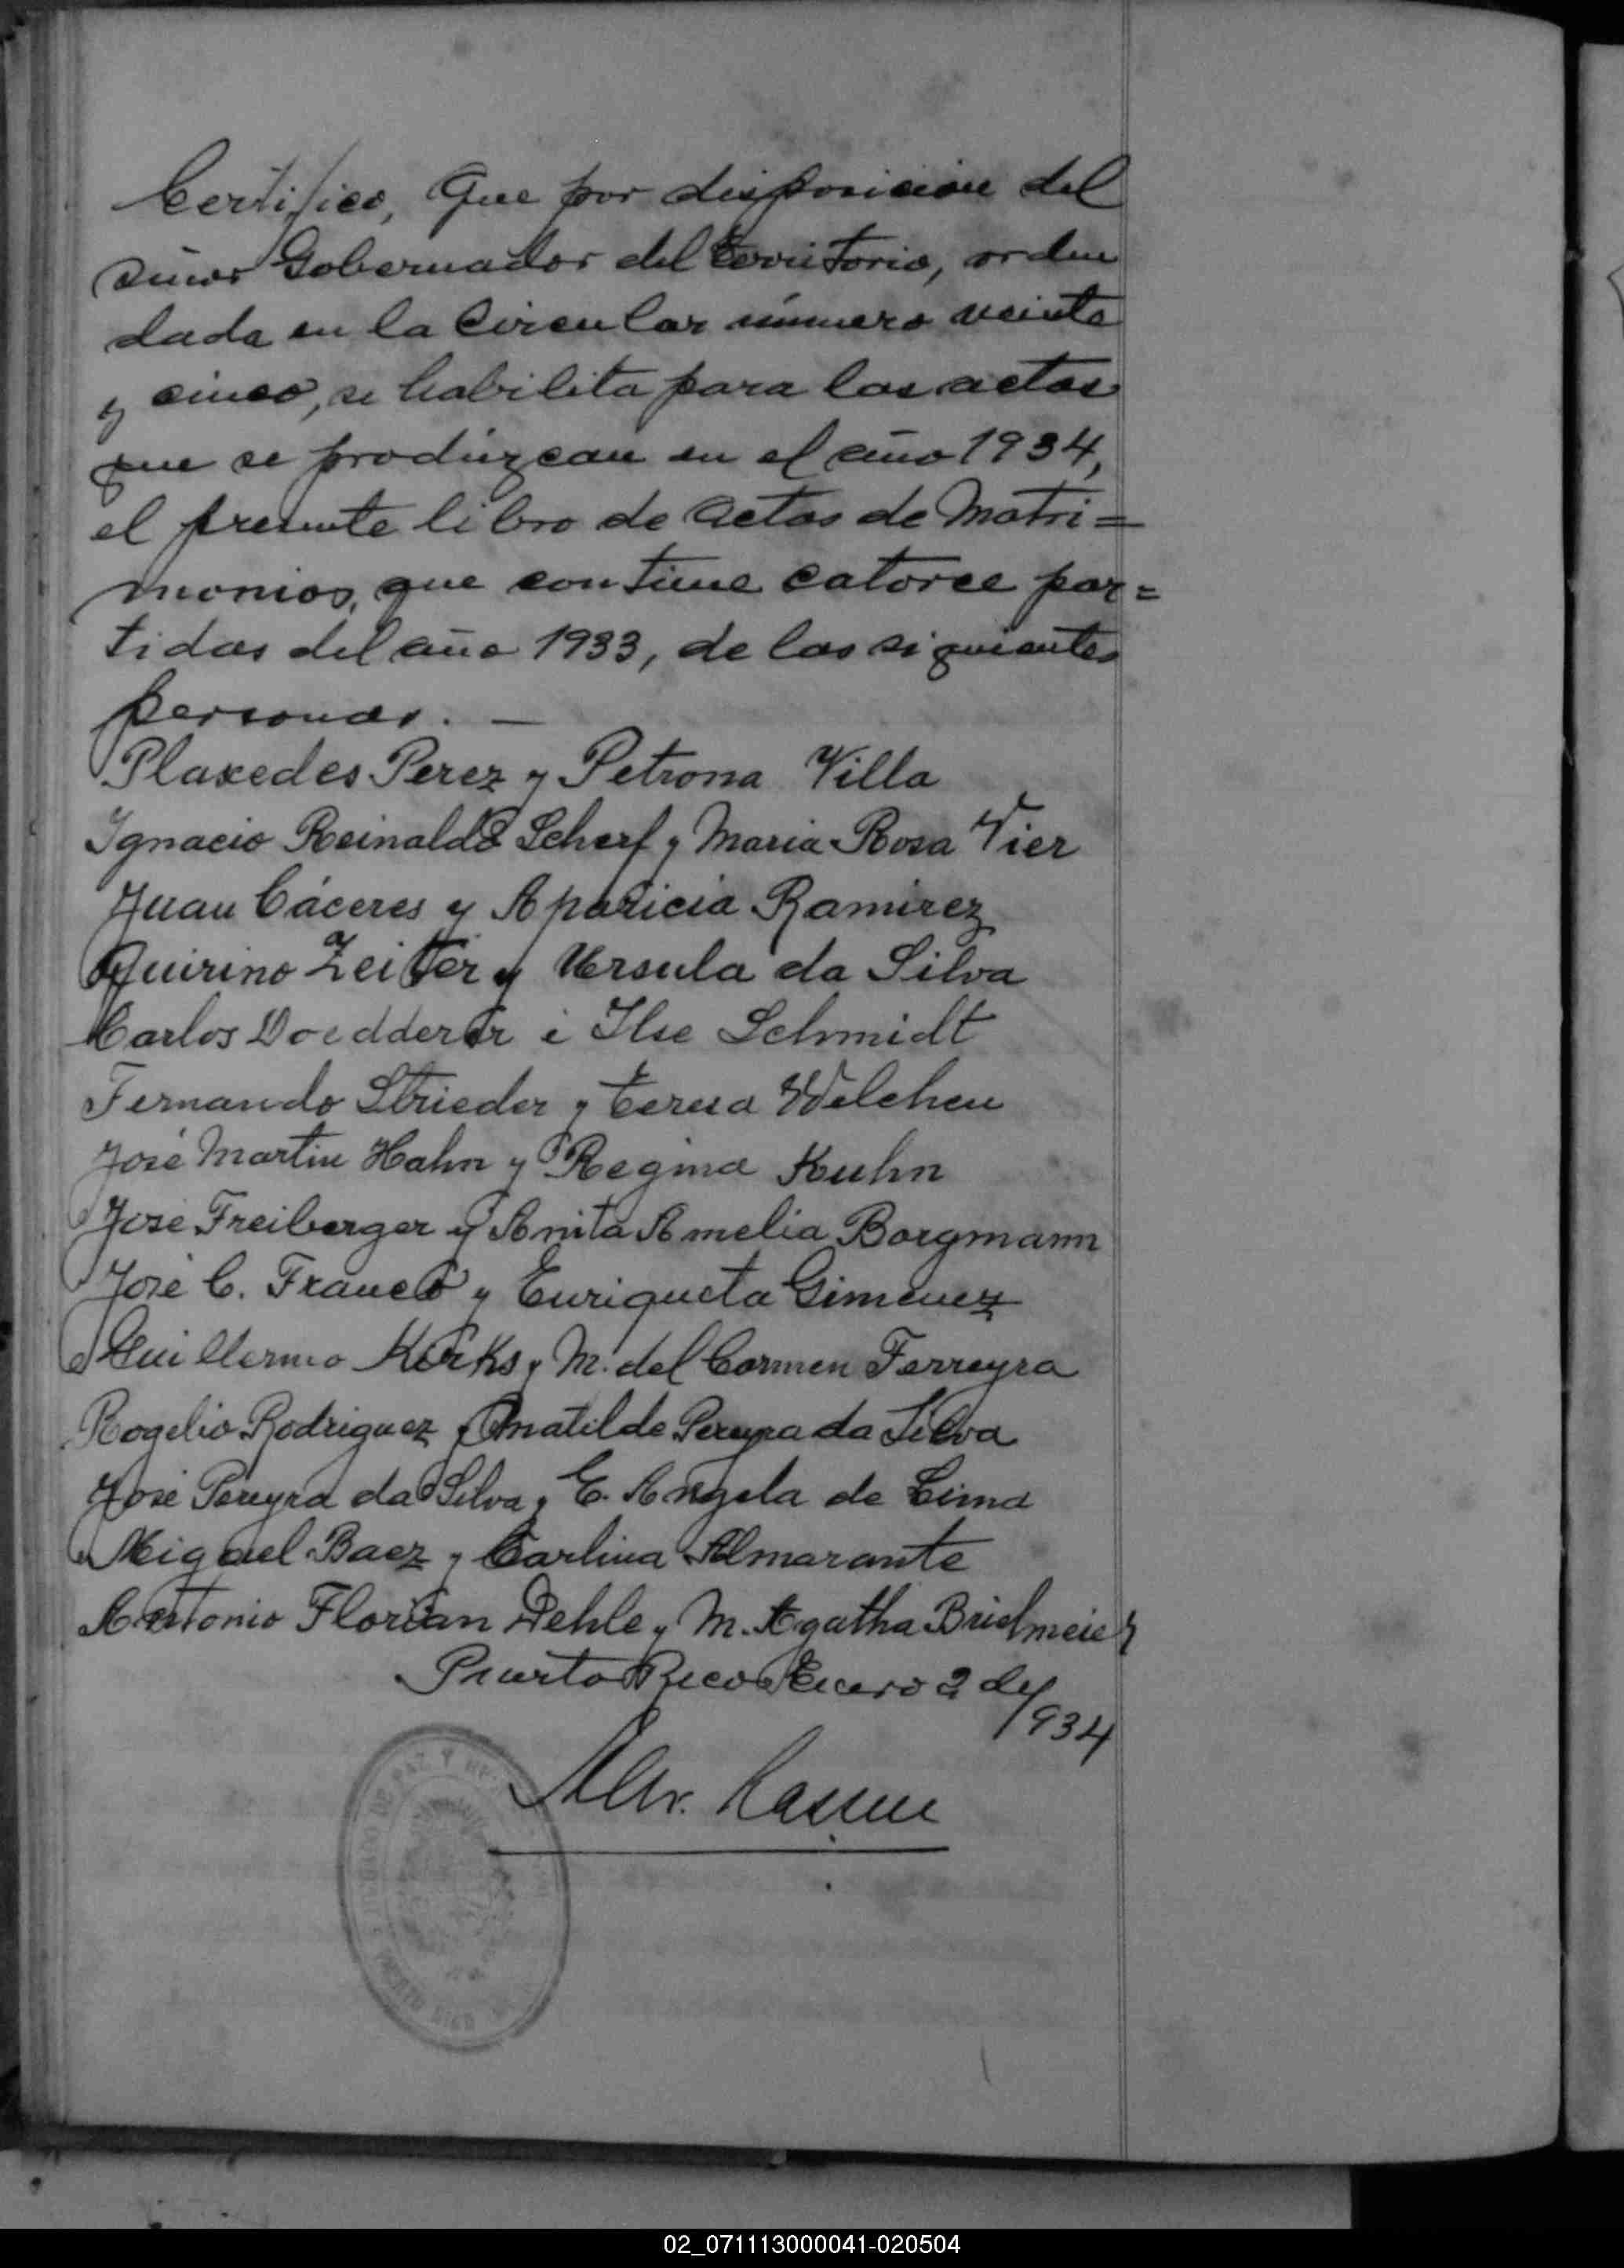 Certifico, Que por disposición del
señor Gobernador del Territorio, orden
dada en la Circular número veinte
y cinco, se habilita para las actas
que se produzcan en el año 1934,
el presente libro de actas de Matri=
monios, que contiene catorce par=
tidas del año 1933, de las siguientes
personas. —
Plaxedes Perez y Petrona Villa
Ignacio Reinaldo Scherf y Maria Rosa Vier
Juan Cáceres y Aparicia Ramirez
Quirino Zeiter y Ursula da Silva
Carlos Doedderer é Ilse Schmidt
Fernando Strieder y Teresa Welchen
José Martin Hahn y Regina Kuhn
José Freiberger y Anita Amelia Borgmann
José C. Franco y Enriqueta Gimenez
Guillermo Kerks y M. del Carmen Ferreyra
Rogelio Rodriguez y Matilde Pereyra da Silva
José Pereyra da Silva y E. Angela de Lima
Miguel Baez y Carlina Almarante
Antonio Florian Dehle y M. Agatha Brielmeier
Puerto Rico Enero 2 de
1934
JUZGADO DE PAZ Y
PUERTO RICO
02_071113000041-020504